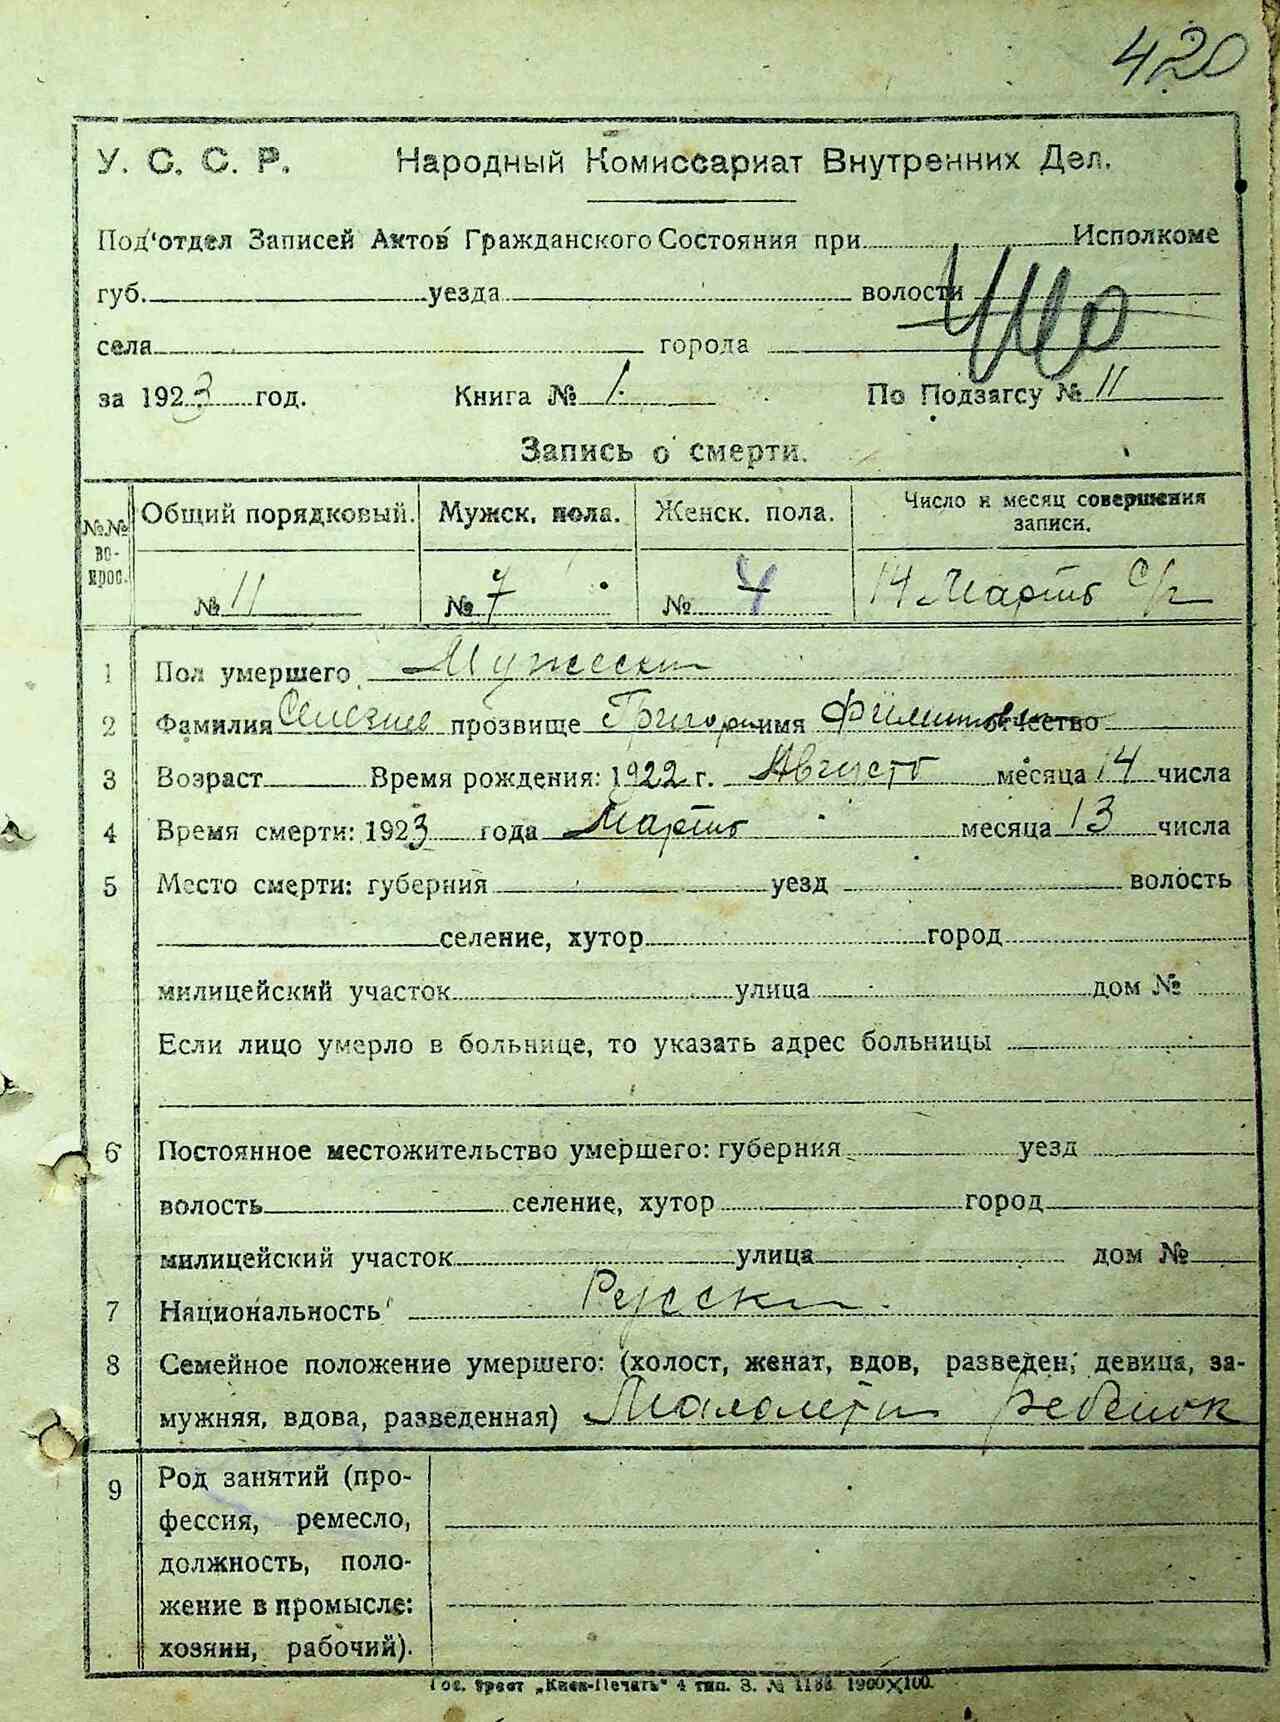 420
У. С. С. Р. Народный Комиссариат Внутренних Дел.
Под'отдел Записей Актов Гражданского Состояния при Исполкоме
губ. уезда волости
села города
за 1923 год. Книга № 1. По Подзагсу № 11
Запись о смерти.
№№ вопрос. Общий порядковый. Мужск. пола. Женск. пола. Число и месяц совершения записи.
№ 11 № 7 № 4 14 Март С/г
1 Пол умершего Мужески
2 Фамилия прозвище Григори имя отчество
3 Возраст Время рождения: 1922 г. Август месяца 14 числа
4 Время смерти: 1923 года Март месяца 13 числа
5 Место смерти: губерния уезд волость
селение, хутор город
милицейский участок улица дом №
Если лицо умерло в больнице, то указать адрес больницы
6 Постоянное местожительство умершего: губерния уезд
волость селение, хутор город
милицейский участок улица дом №
7 Национальность Русски
8 Семейное положение умершего: (холост, женат, вдов, разведен, девица, за-
мужняя, вдова, разведенная) Малолетн ребенок
9 Род занятий (про-
фессия, ремесло,
должность, поло-
жение в промысле:
хозяин, рабочий).
Гос. трест „Киев-Печать" 4 тип. З. № 1188. 1900×100.